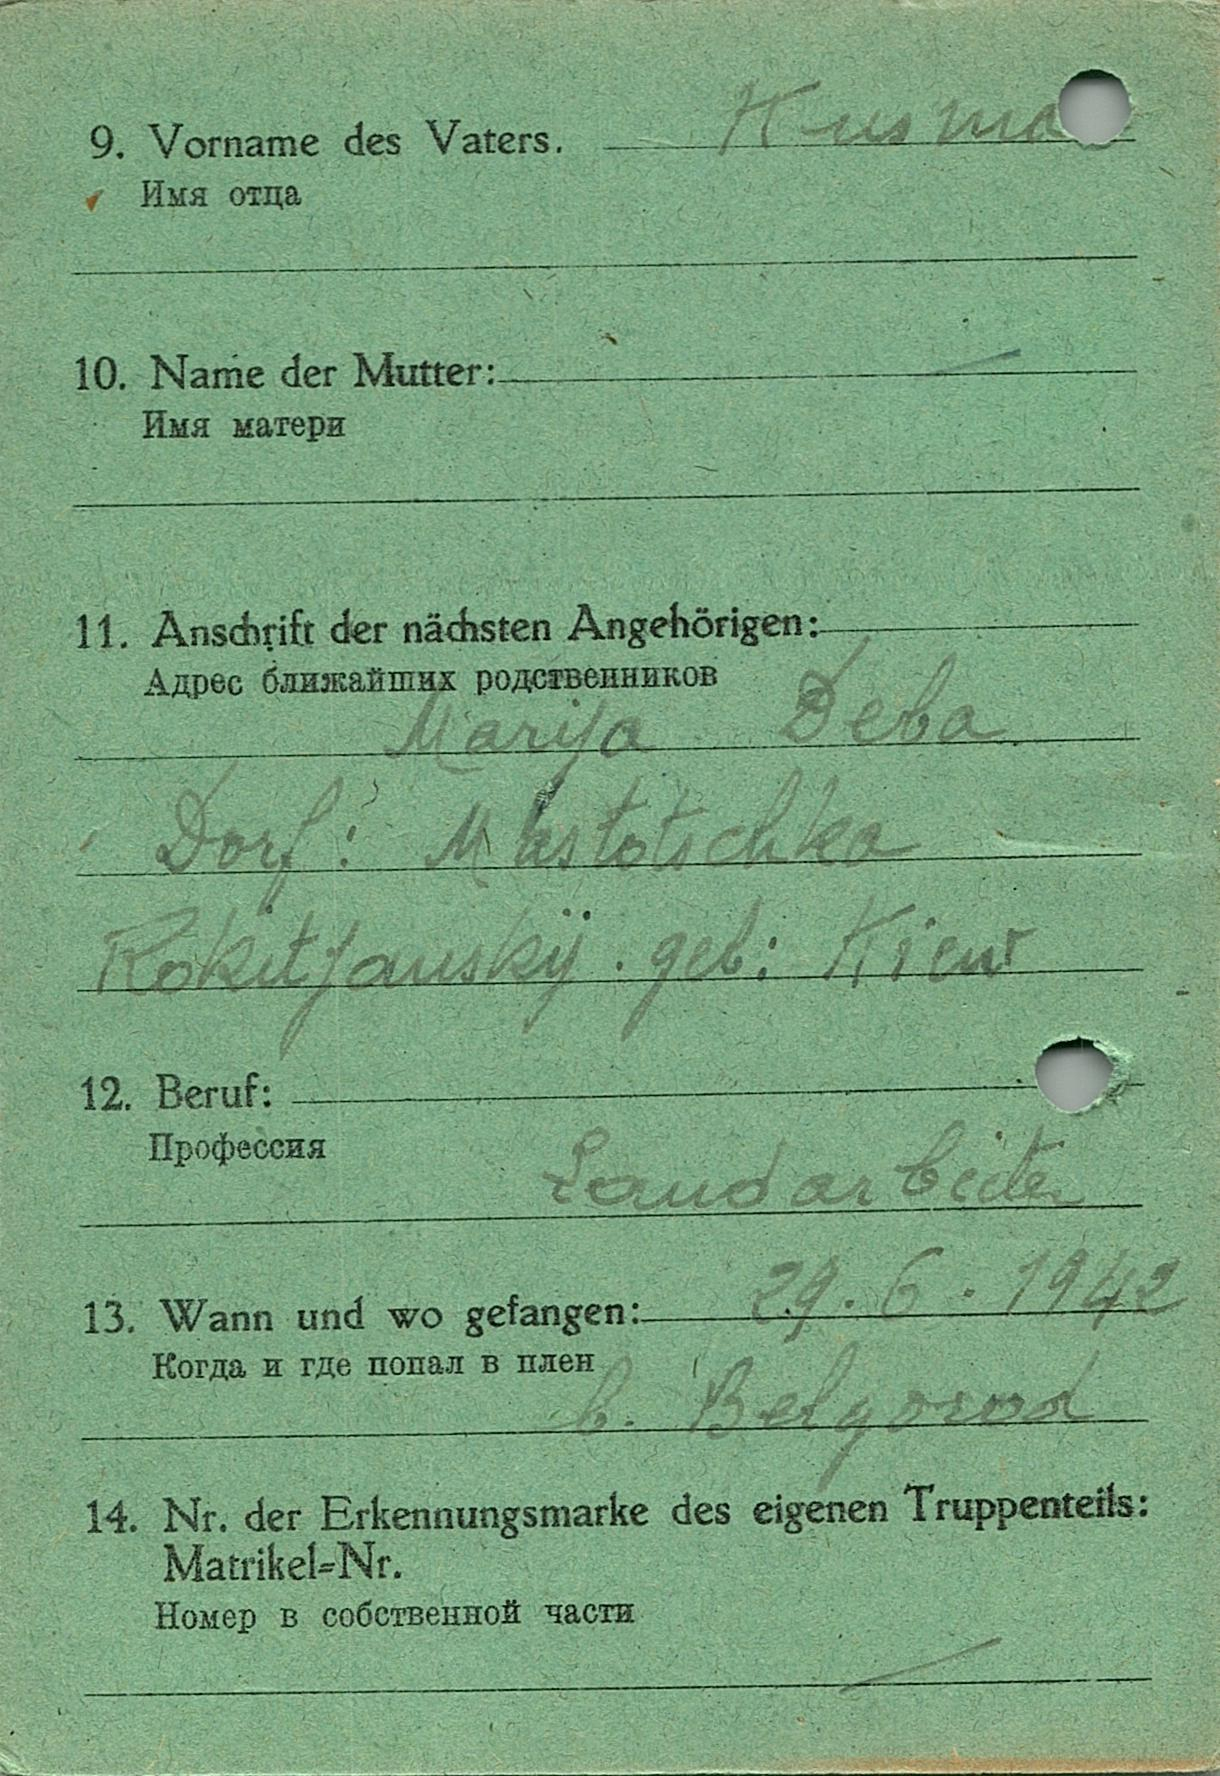 9. Vorname des Vaters. Kusma
Имя отца
10. Name der Mutter: —
Имя матери
11. Anschrift der nächsten Angehörigen:
Адрес ближайших родственников
Marija Deba
Dorf:
Rokitjanskÿ. geb: Kiew
12. Beruf:
Профессия
Landarbeiter
13. Wann und wo gefangen: 29.6.1942
Когда и где попал в плен
b. Belgorod
14. Nr. der Erkennungsmarke des eigenen Truppenteils:
Matrikel=Nr.
Номер в собственной части
—